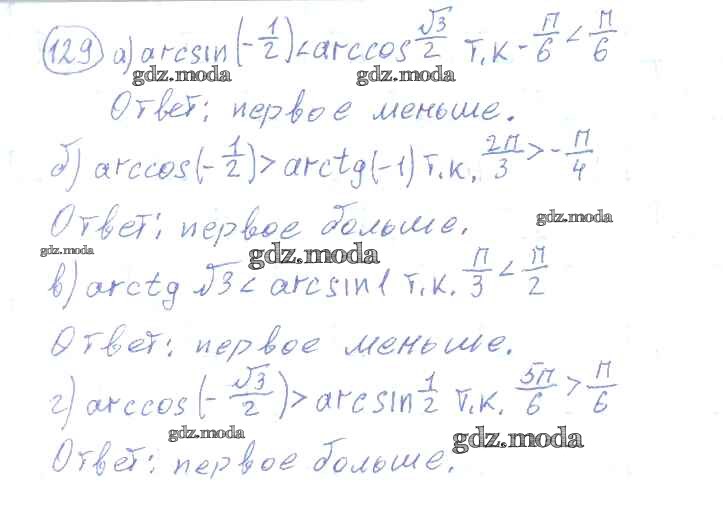 129 а) arcsin(-1/2) < arccos √3/2 т.к -п/6 < п/6
gdz.moda gdz.moda
Ответ: первое меньше.
б) arccos(-1/2) > arctg(-1) т.к. 2п/3 > -п/4
Ответ: первое больше.
gdz.moda
gdz.moda gdz.moda
в) arctg √3 < arcsin1 т.к. п/3 < п/2
Ответ: первое меньше.
г) arccos(-√3/2) > arcsin 1/2 т.к. 5п/6 > п/6
gdz.moda gdz.moda
Ответ: первое больше.